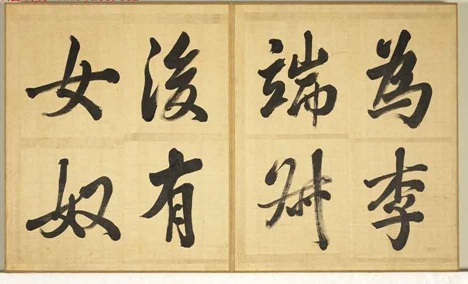 為李
端叔
後有
女奴